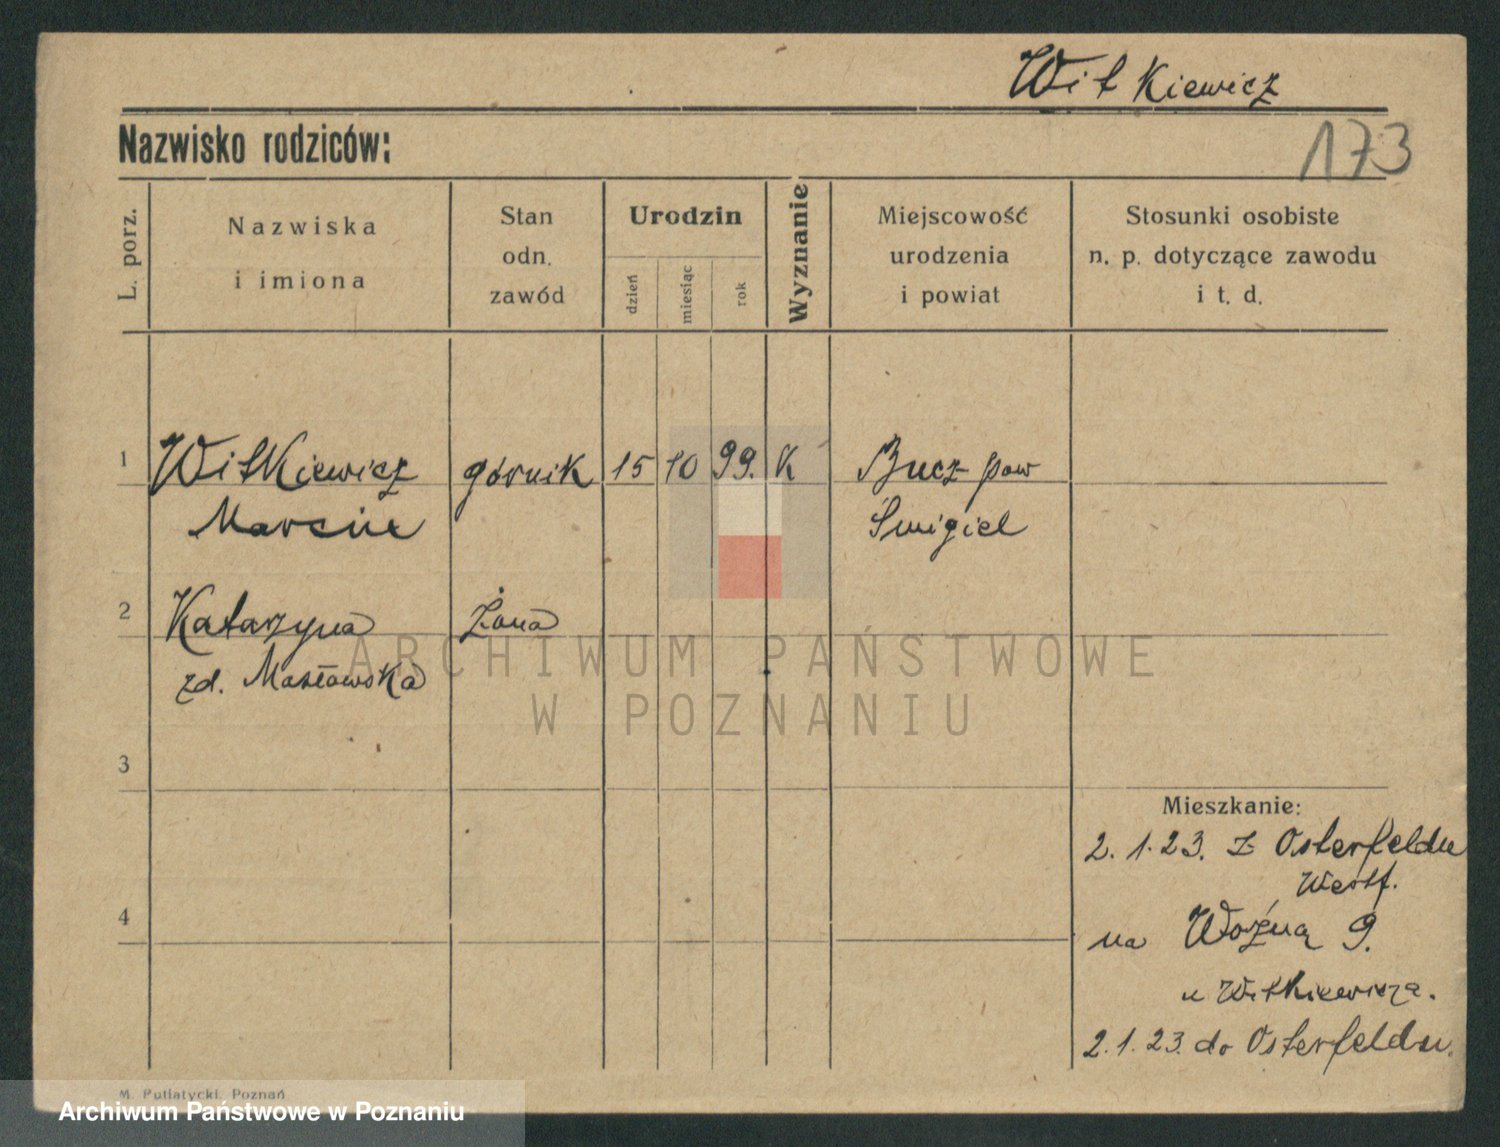 Witkiewicz
Nazwisko rodziców:
173
L. porz.
Nazwiska
i imiona
Stan
odn.
zawód
Urodzin
dzień
miesiąc
rok
Wyznanie
Miejscowość
urodzenia
i powiat
Stosunki osobiste
n. p. dotyczące zawodu
i t. d.
1 Witkiewicz górnik 15 10 99. K Bucz pow
Marcin Śmigiel
2 Katarzyna Żona
zd. Masłowska
ARCHIWUM PAŃSTWOWE
W POZNANIU
3
Mieszkanie:
2.1.23. z Osterfeldu
Westf.
4
na Woźną 9.
u Witkiewicza.
2.1.23. do Osterfeldu.
M. Putiatycki, Poznań
Archiwum Państwowe w Poznaniu